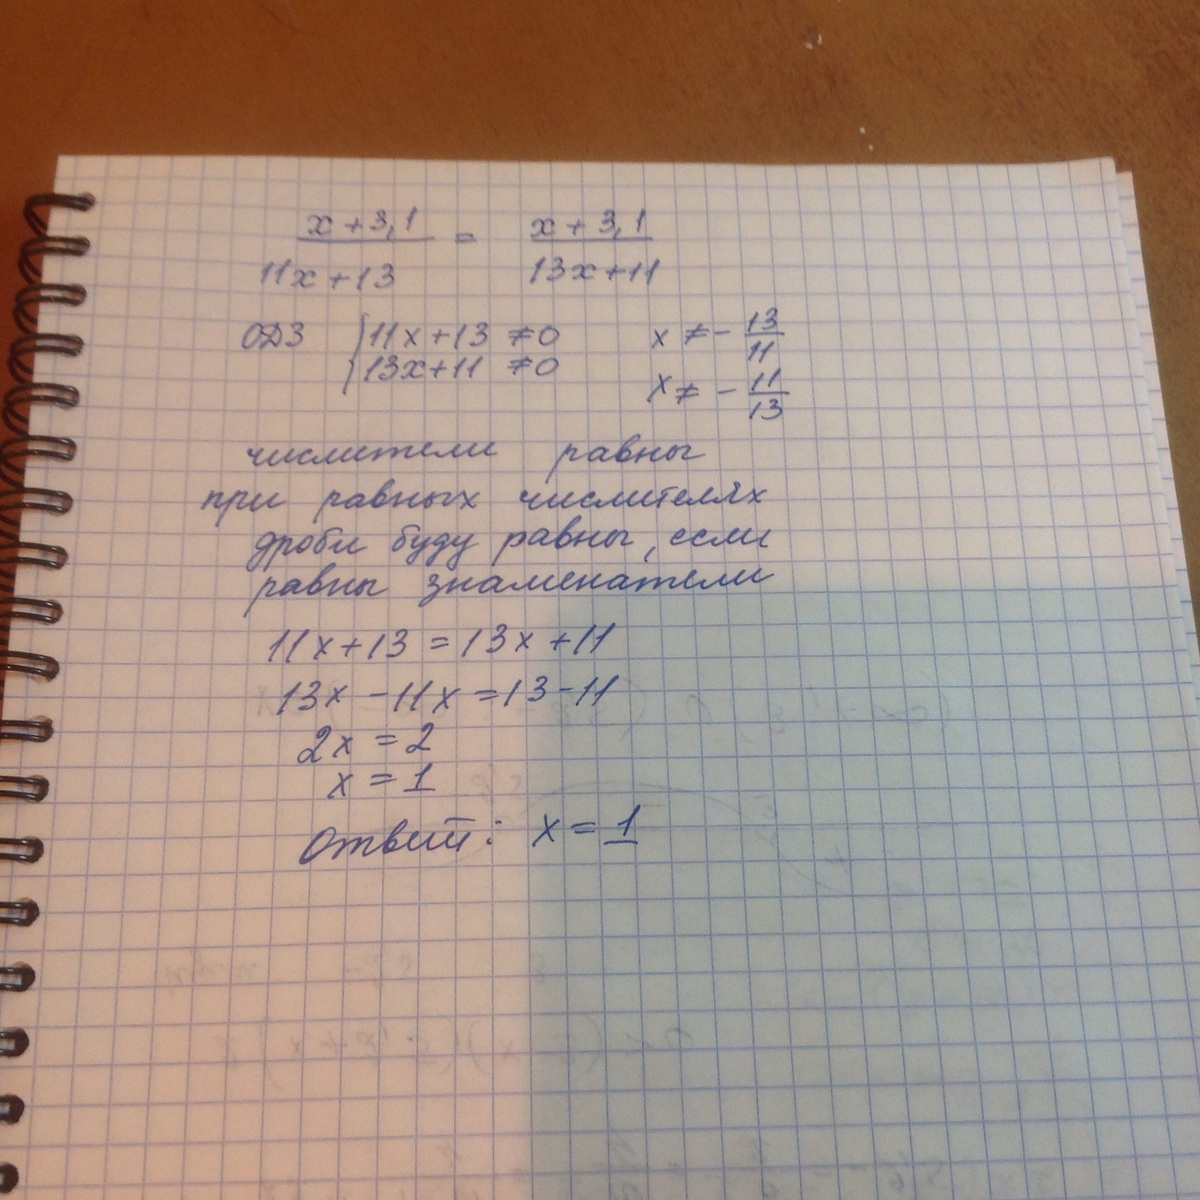 x + 3,1 / 11x + 13 = x + 3,1 / 13x + 11
ОДЗ { 11x + 13 ≠ 0 x ≠ - 13/11
13x + 11 ≠ 0 x ≠ - 11/13
числители равны
при равных числителях
дроби буду равны, если
равны знаменатели
11x + 13 = 13x + 11
13x - 11x = 13 - 11
2x = 2
x = 1
Ответ: x = 1